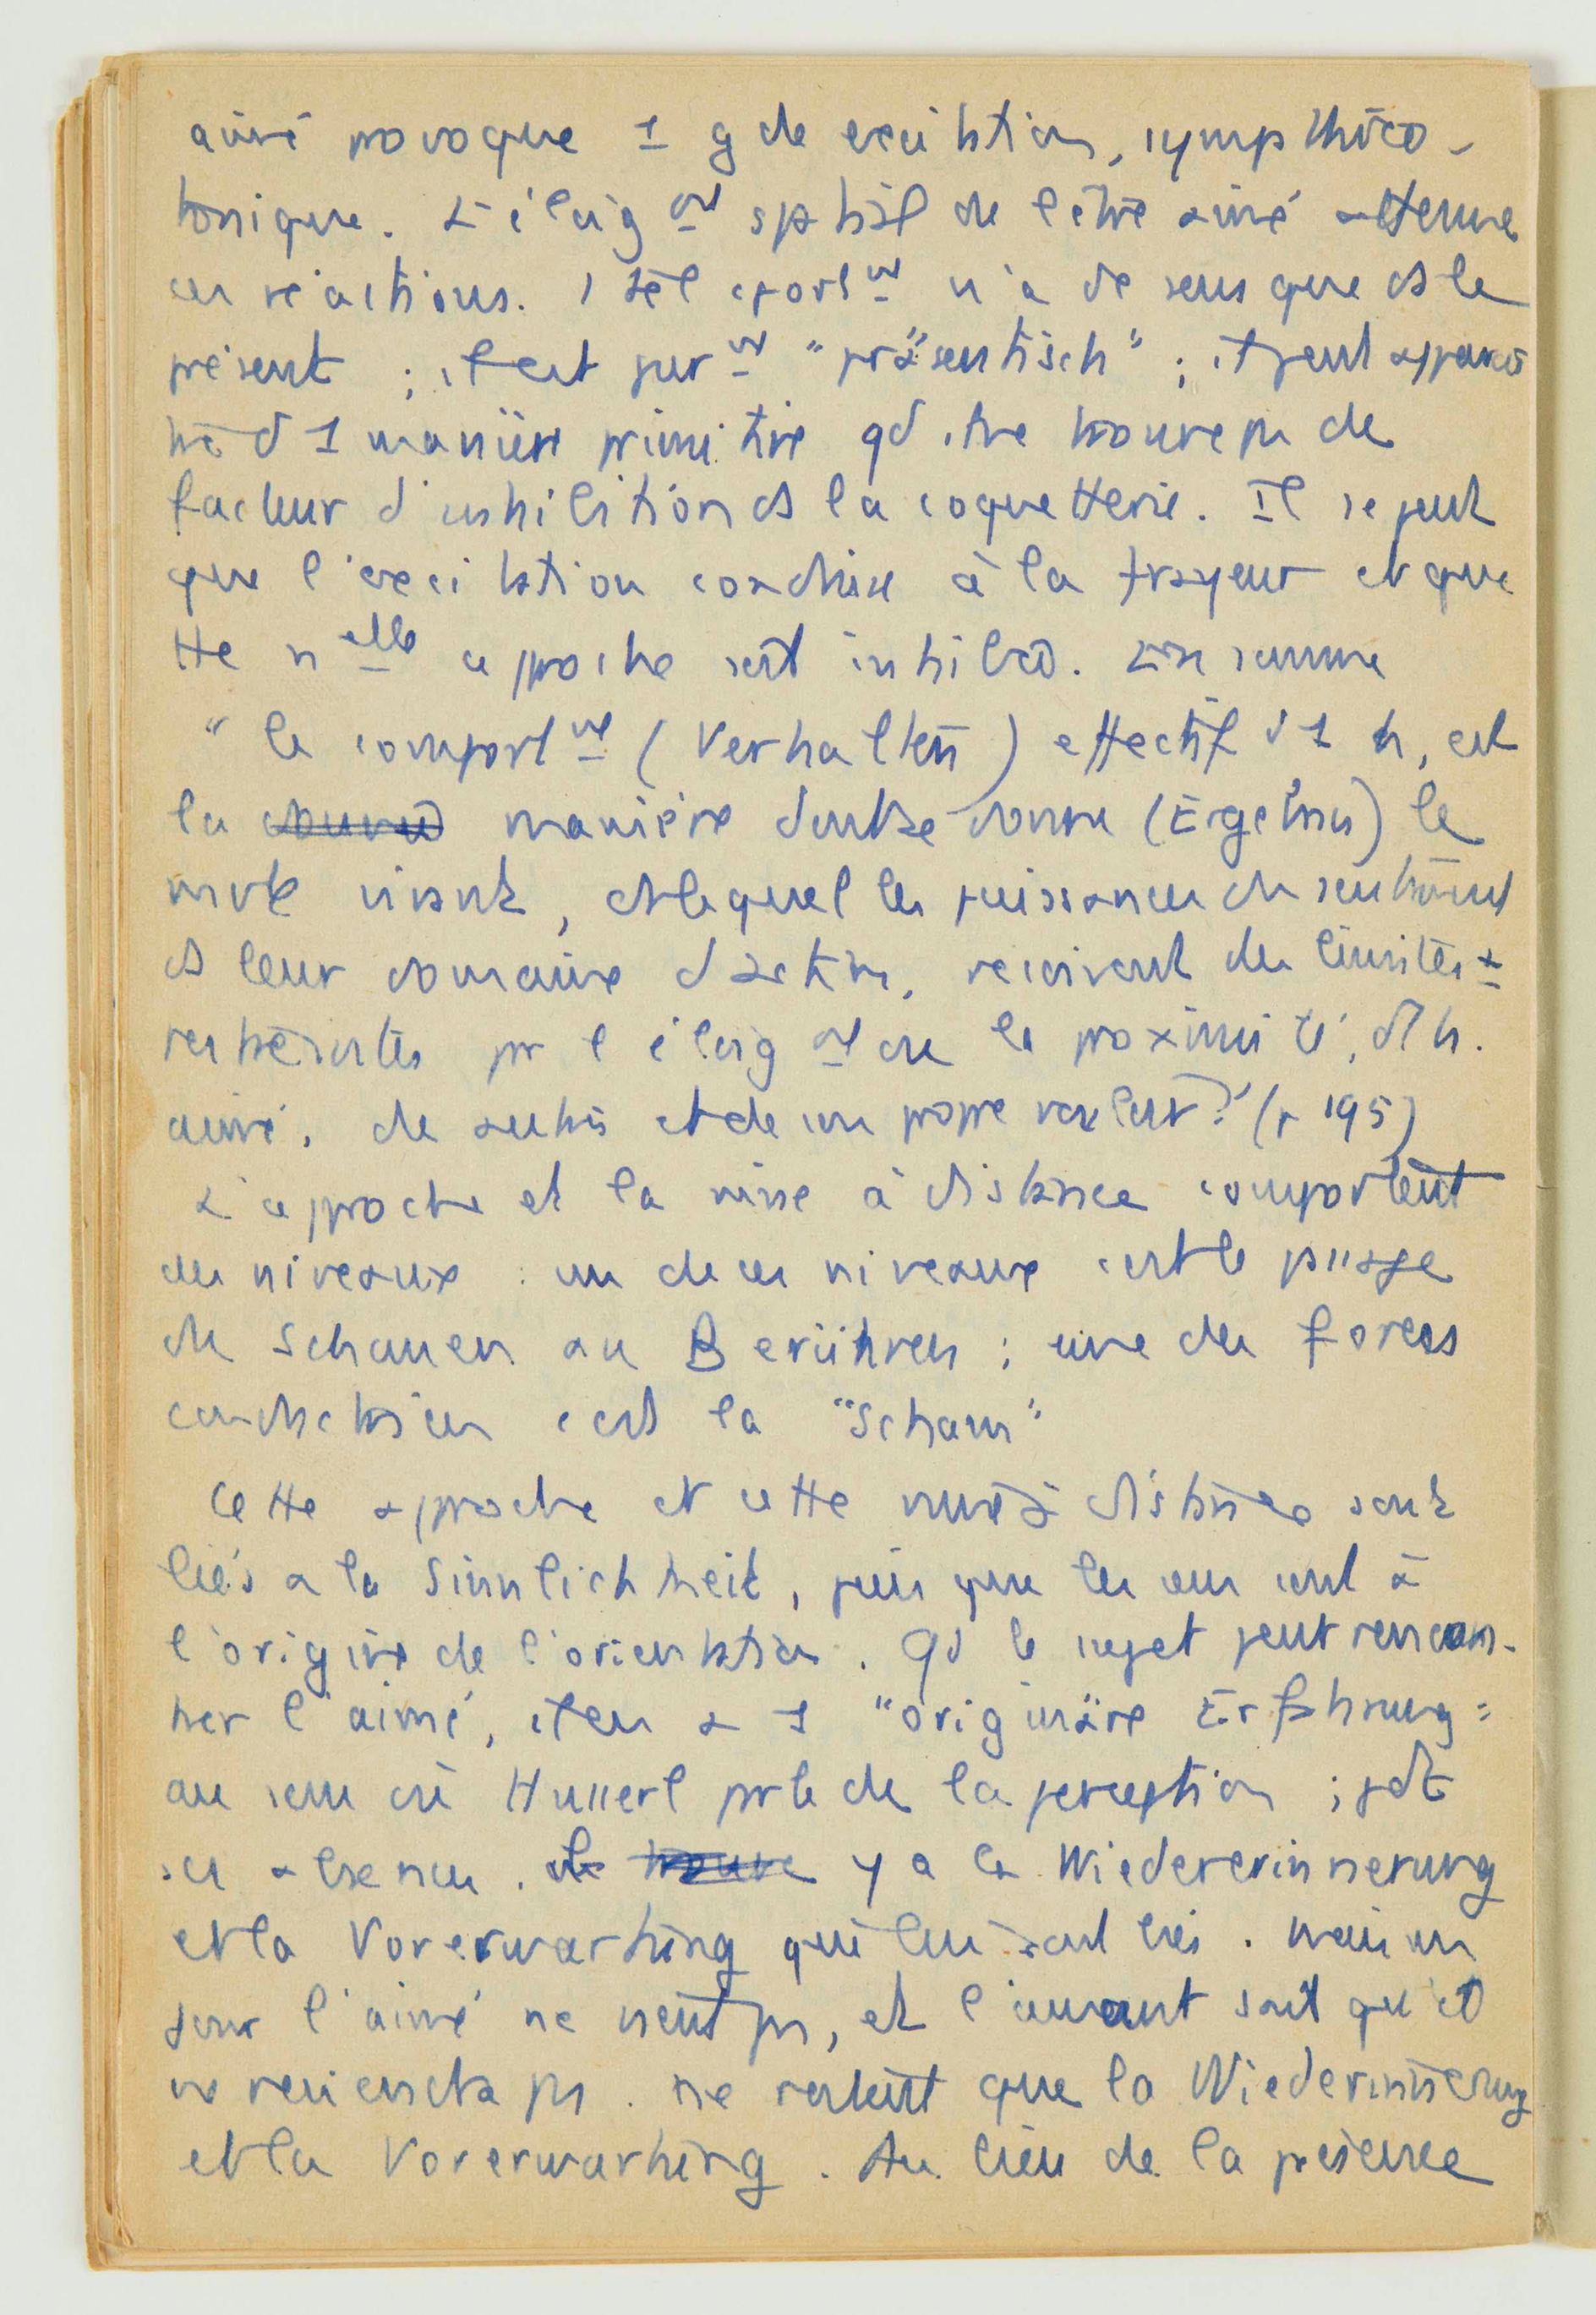 aimé provoque 1 gde excitation, sympathico-
tonique. L'éloignt spatial de l'être aimé atténue
ces réactions. 1 tel cportmt n'a de sens que ds le
présent ; il est puremt "präsentisch" ; il peut apparaî
tre d 1 manière primitive qd il ne trouve pas de
facteur d'inhibition ds la coquetterie. Il se peut
que l'excitation conduise à la frayeur et que
tte nelle approche soit inhibée. En somme
" le comportmt (Verhalten) effectif d 1 h, est
la manière dont se donne (Ergebnis) le
vivant, ds lequel les puissances du sentiment
ds leur domaine d'action, reçoivent des limites
restreintes par l'éloignt ou la proximité, de l'h.
aimé, de autrui et de son propre valeur" (p 195)
L'approche et la mise à distance comportent
des niveaux : un de ces niveaux c'est le passage
du Schauen au Berühren ; une des forces
conductrices c'est la "Scham"
Cette approche et cette mise à distance sont
liés a la Sinnlichkeit, puisque les sens sont à
l'origine de l'orientation. Qd le sujet peut rencon-
trer l'aimé, il en a 1 "originäre Erfahrung"
au sens où Husserl parle de la perception ; pdt
ses absences, il y a la Wiedererinnerung
et la Vorerwartung qui lui sont liés. Mais un
jour l'aimé ne vient pas, et l'amant sait qu'il
ne reviendra pas. ne restent que la Wiedererinnerung
et la Vorerwartung. Au lieu de la présence